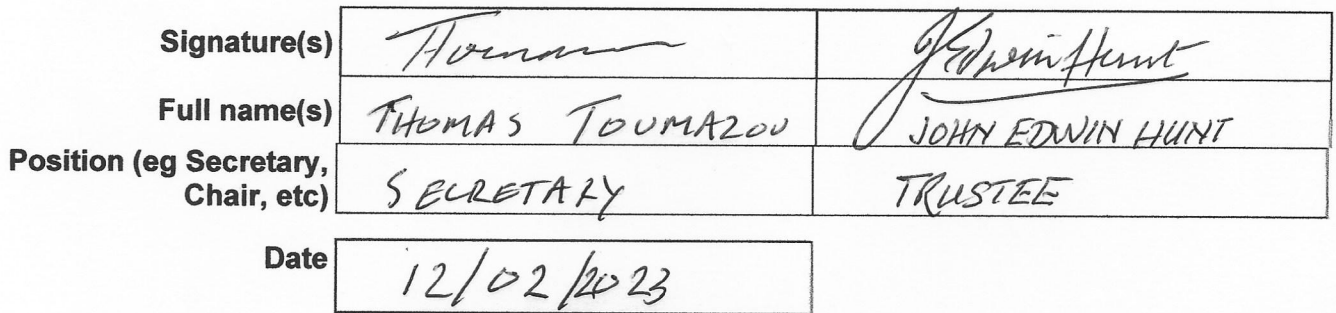 Signature(s) J Edwin Hunt
Full name(s) THOMAS TOUMAZOU JOHN EDWIN HUNT
Position (eg Secretary,
Chair, etc) SECRETARY TRUSTEE
Date 12/02/2023